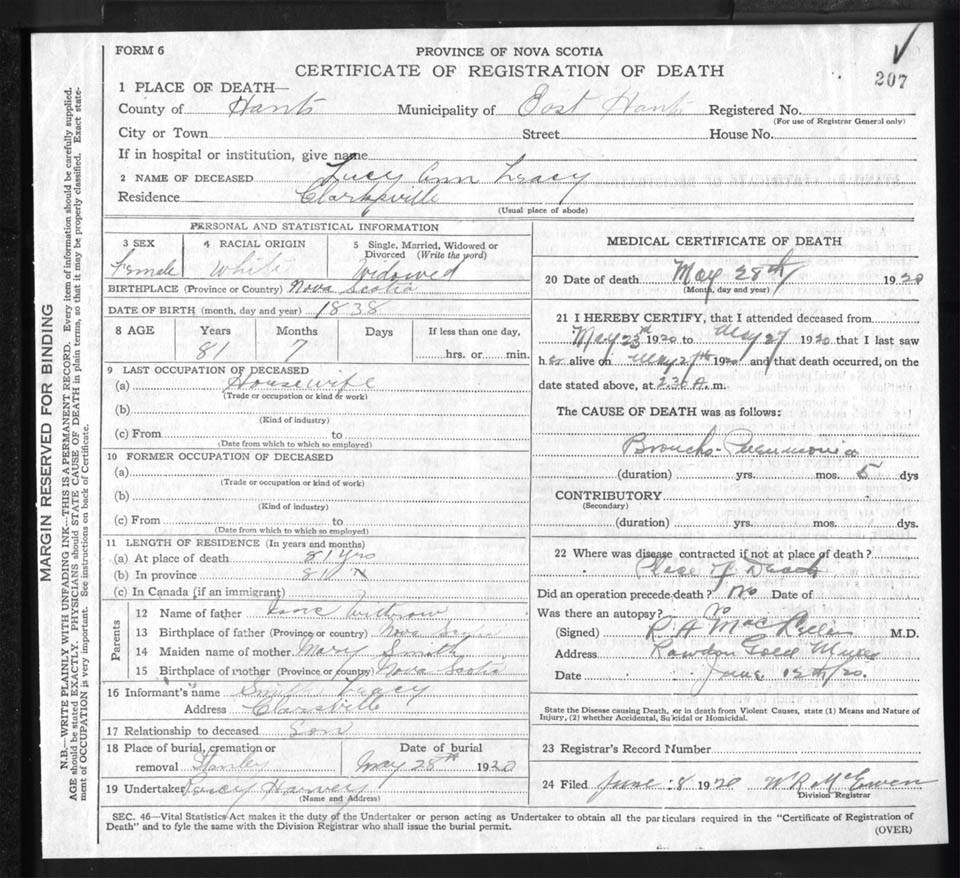 FORM 6
PROVINCE OF NOVA SCOTIA
CERTIFICATE OF REGISTRATION OF DEATH
207
1 PLACE OF DEATH—
County of Hants Municipality of East Hants Registered No.
(For use of Registrar General only)
City or Town Street House No.
If in hospital or institution, give name
2 NAME OF DECEASED Lucy Ann
Residence Clarksville
(Usual place of abode)
PERSONAL AND STATISTICAL INFORMATION
3 SEX 4 RACIAL ORIGIN 5 Single, Married, Widowed or Divorced (Write the word)
Female White Widowed
BIRTHPLACE (Province or Country) Nova Scotia
DATE OF BIRTH (month, day and year) 1838
8 AGE Years Months Days If less than one day,
81 7 hrs. or min.
9 LAST OCCUPATION OF DECEASED
(a) Housewife
(Trade or occupation or kind of work)
(b)
(Kind of industry)
(c) From to
(Date from which to which so employed)
10 FORMER OCCUPATION OF DECEASED
(a)
(Trade or occupation or kind of work)
(b)
(Kind of industry)
(c) From to
(Date from which to which so employed)
11 LENGTH OF RESIDENCE (In years and months)
(a) At place of death 81 yrs
(b) In province 81 "
(c) In Canada (if an immigrant)
Parents
12 Name of father Withrow
13 Birthplace of father (Province or country) Nova Scotia
14 Maiden name of mother Mary Smith
15 Birthplace of mother (Province or country) Nova Scotia
16 Informant's name
Address Clarksville
17 Relationship to deceased Son
18 Place of burial, cremation or removal Stanley
Date of burial
May 28th 1920
19 Undertaker Percy Harvey
(Name and Address)
MEDICAL CERTIFICATE OF DEATH
20 Date of death May 28th 1920
(Month, day and year)
21 I HEREBY CERTIFY, that I attended deceased from
May 23rd 1920 to May 27 1920 that I last saw
her alive on May 27th 1920 and that death occurred, on
date stated above, at 2.30 A. m.
The CAUSE OF DEATH was as follows:
Broncho-Pneumonia
(duration) yrs. mos. 5 dys
CONTRIBUTORY
(Secondary)
(duration) yrs. mos. dys.
22 Where was disease contracted if not at place of death?
Place of Death
Did an operation precede death? No Date of
Was there an autopsy? No
(Signed) R A M.D.
Address Rawdon Gold Mines
Date June
State the Disease causing Death, or in death from Violent Causes, state (1) Means and Nature of
Injury, (2) whether Accidental, Suicidal or Homicidal.
23 Registrar's Record Number
24 Filed June 8 1920 W R McEwen
Division Registrar
SEC. 46—Vital Statistics Act makes it the duty of the Undertaker or person acting as Undertaker to obtain all the particulars required in the "Certificate of Registration of
Death" and to fyle the same with the Division Registrar who shall issue the burial permit.
(OVER)
MARGIN RESERVED FOR BINDING
N.B.—WRITE PLAINLY WITH UNFADING INK—THIS IS A PERMANENT RECORD. Every item of information should be carefully supplied.
AGE should be stated EXACTLY. PHYSICIANS should STATE CAUSE OF DEATH in plain terms, so that it may be properly classified. Exact state-
ment of OCCUPATION is very important. See instructions on back of Certificate.